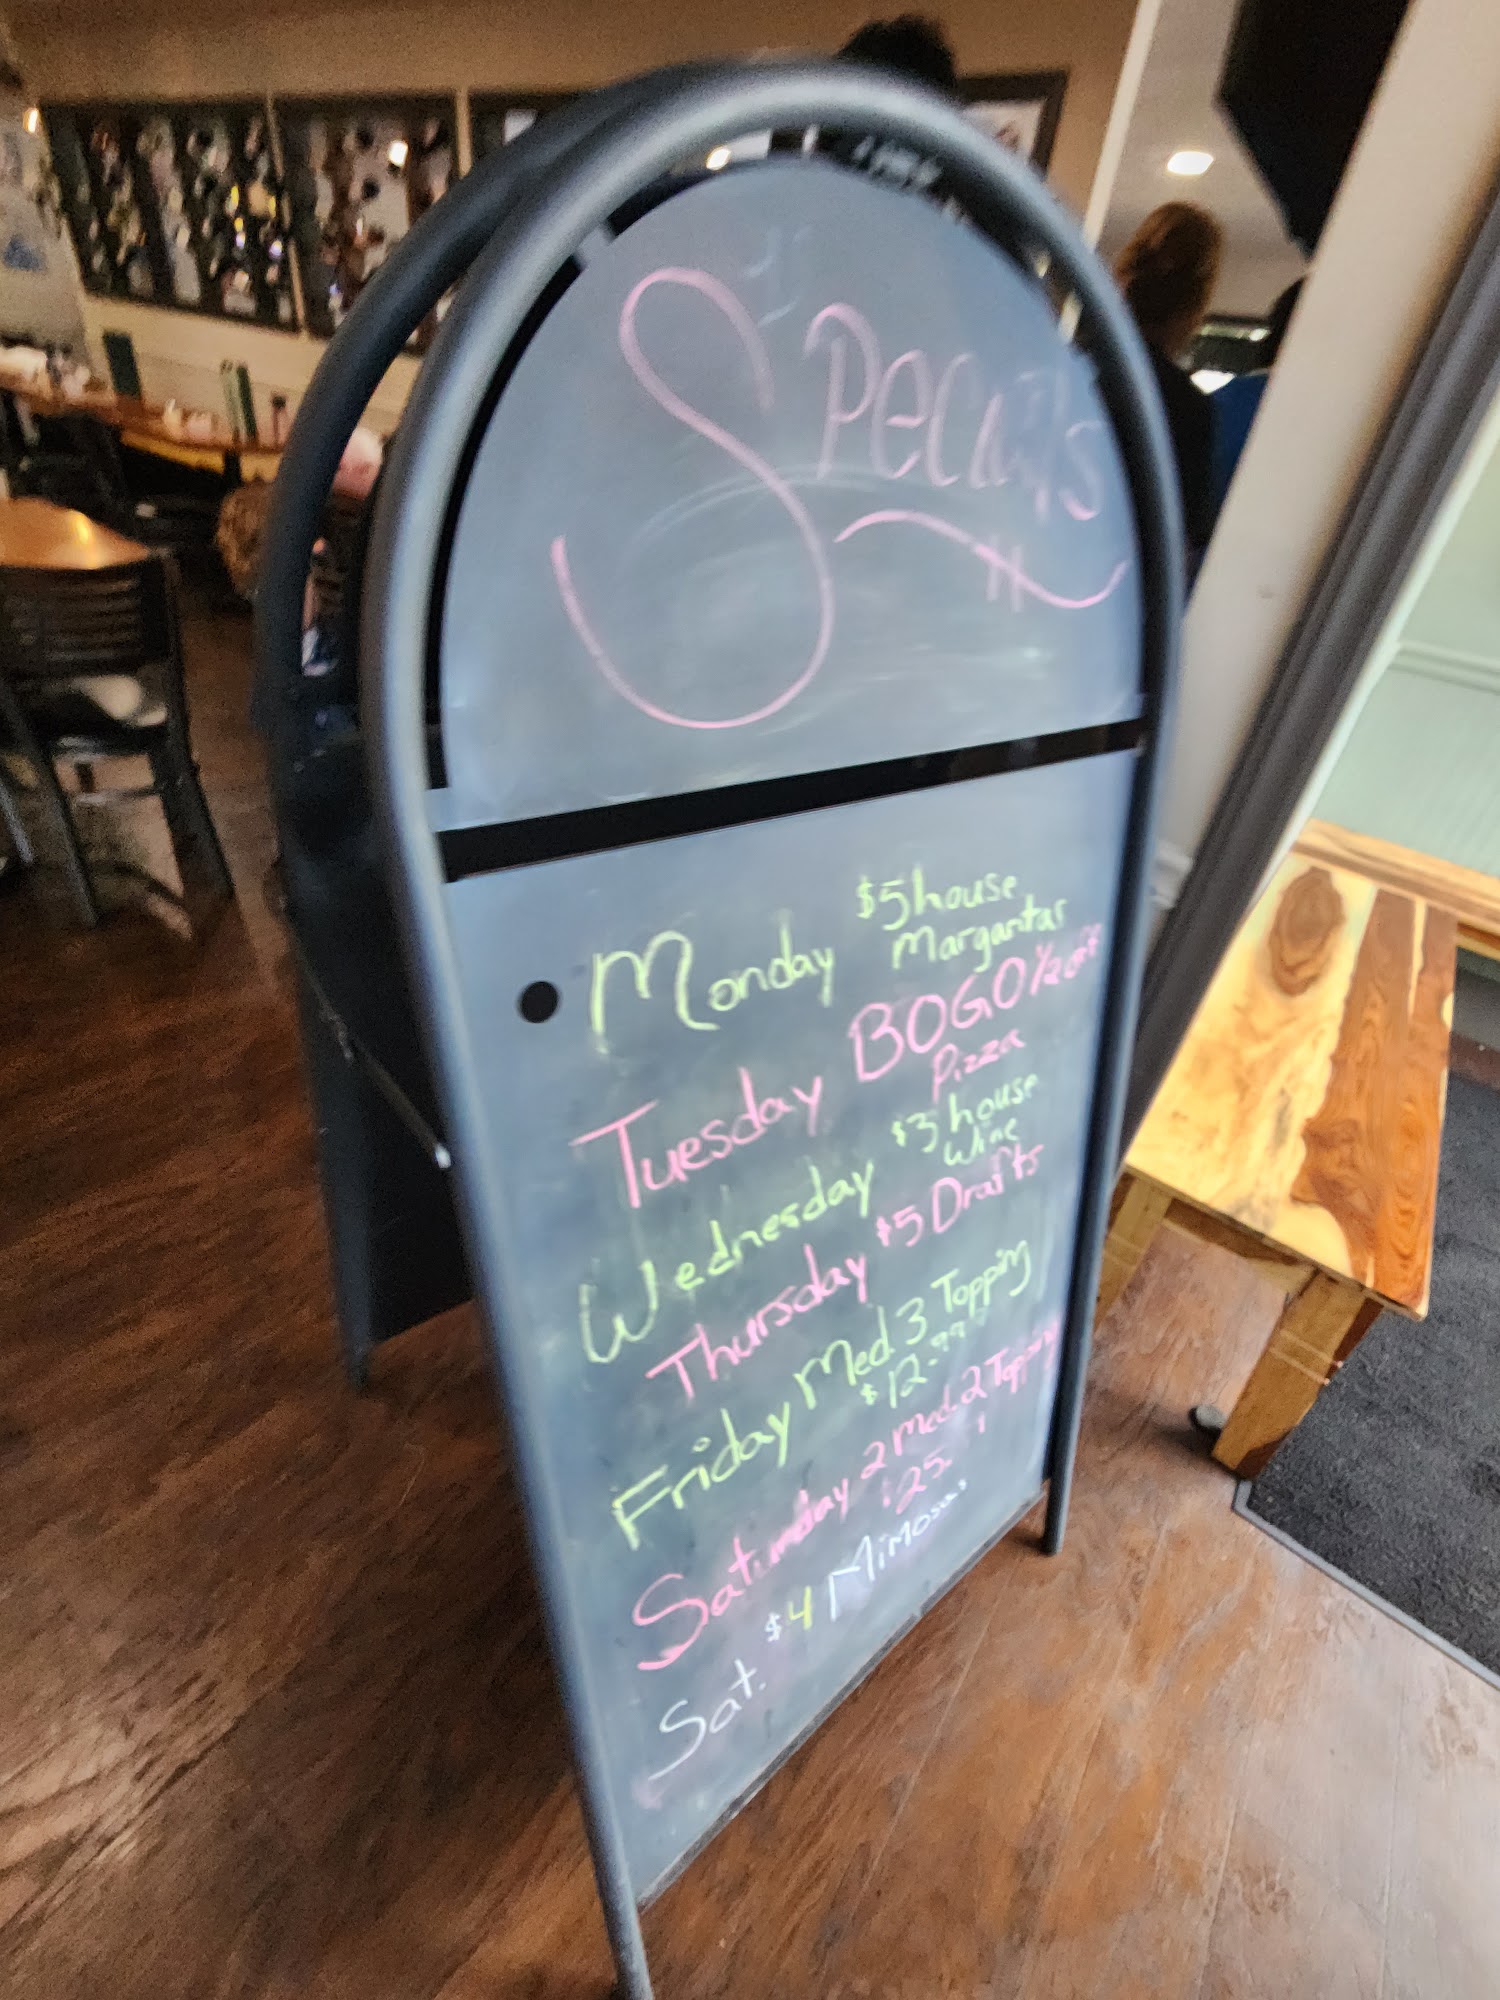 Specials
Monday $5 house
Margaritas
Tuesday BOGO 1/2 off
Pizza
Wednesday $3 house
Wine
Thursday $5 Drafts
Friday Med. 3 Topping
$12.99
Saturday 2 Med. 2 Topping
$25.
Sat. $4 Mimosas